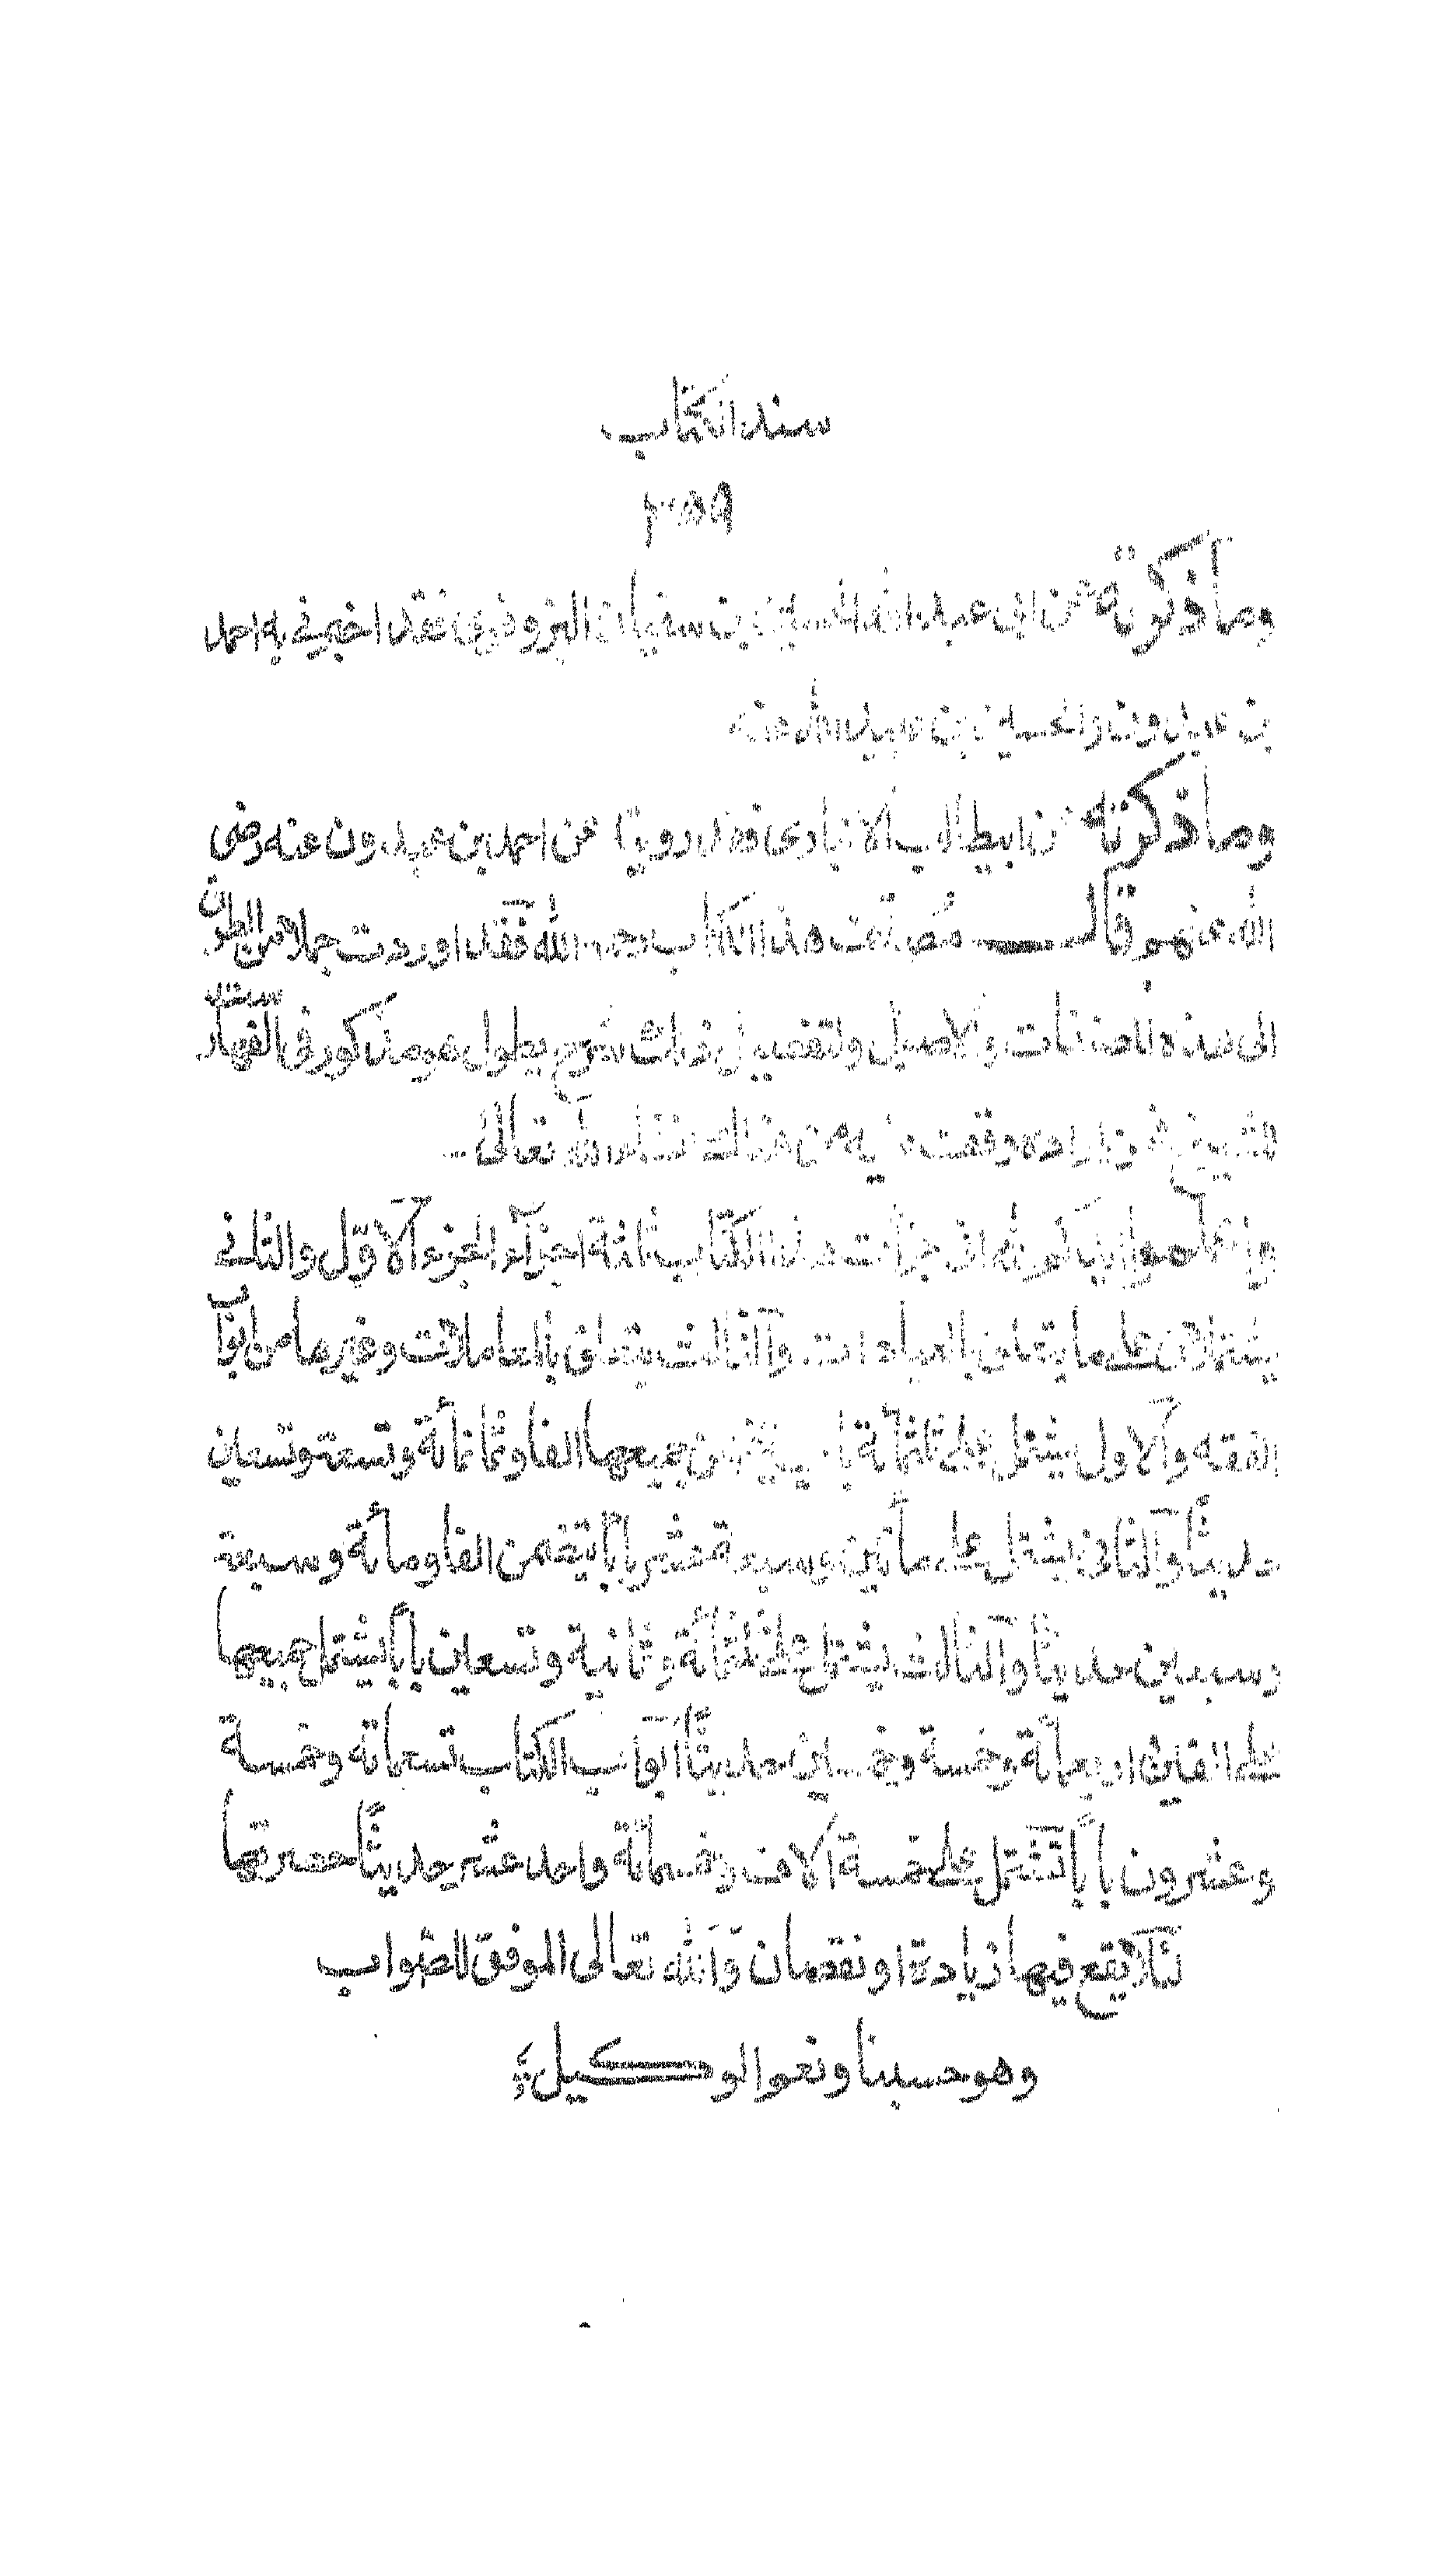 سند الكتاب
٢٥٩
وما ذكرته عن ابى عبد الله الحسين بن سفيان البزوفرى فقد اخبرنى به احمد
بن عبدون والحسين بن عبيد الله عنه
وما ذكرته عن ابيطالب الانبارى فقد رويته عن احمد بن عبدون عنه رضى
الله عنهم قال مصنف هذا الكتاب رحمه الله فقد اوردت جملا من الطرق
الى هذه المصنفات والاصول ولتفصيل ذلك شرح يطول هو مذكور فى الفهارست
للشيوخ فمن اراده وقف عليه من هناك انشاء الله تعالى
واعلموا ايدكم الله انى جزأت هذا الكتاب ثلثة اجزآء الجزء الاول والثانى
يشتملان على ما يتعلق بالعبادات والثالث يتعلق بالمعاملات وغيرها من ابواب
الفقه والاول يشتمل على ثلثمائة باب يتضمن جميعها الفا وثمانمائة وتسعة وتسعين
حديثًا والثانى يشتمل على مأتين وسبعة عشر بابًا يتضمن الفا ومائة وسبعة
وسبعين حديثًا والثالث يشتمل على ثلثمائة وثمانية وتسعين بابًا يشتمل جميعها
على الفين واربعمائة وخمسة وخمسين حديثًا ابواب الكتاب تسعمائة وخمسة
وعشرون بابًا تشتمل على خمسة آلاف وخمسمائة واحد عشر حديثًا حصرتها
لئلا يقع فيها زيادة او نقصان والله تعالى الموفق للصواب
وهو حسبنا ونعم الوكيل